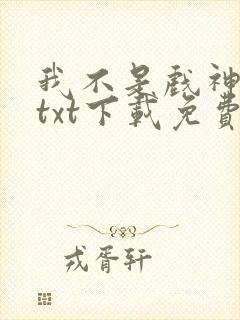 我不是戏神
txt下载免费
戎胥轩